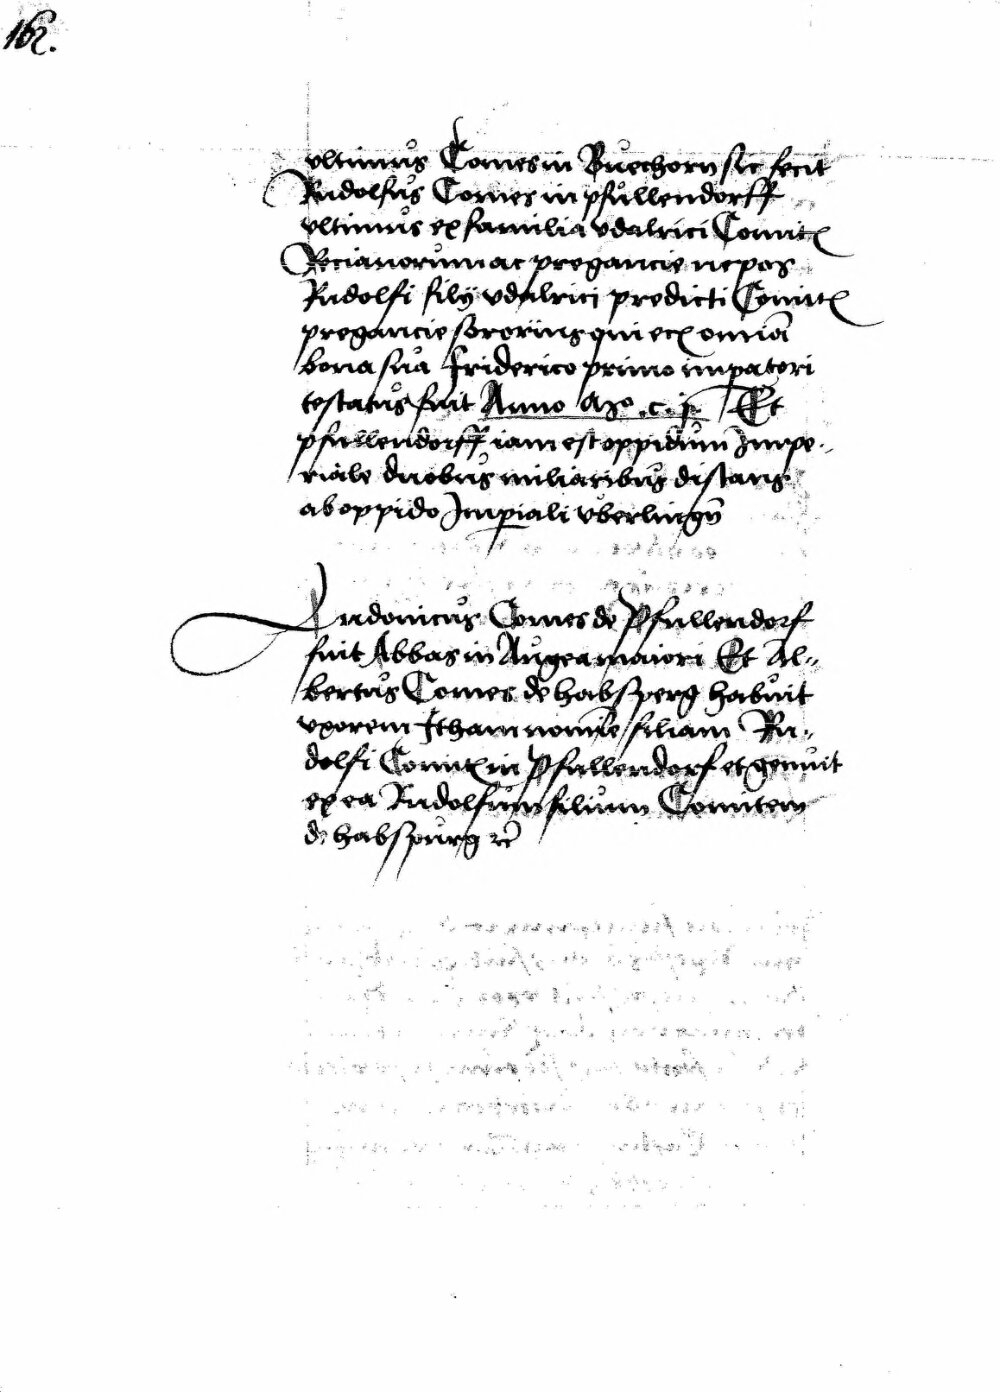 162.
vltimus Comes in Buechorn sic fecit
Rudolfus Comes in pfullendorff
vltimus ex familia vdalrici Comitis
Recianorum ac pregancie nepos
Rudolfi filij vdalrici predicti Comitis
pregancie sororius qui omnia
bona sua friderico primo impatori
testatus fuit Anno Et
pfullendorff iam est oppidum Impe-
riale duobus miliaribus distans
ab oppido Impiali vberlingn
Ludovicus Comes de Pfullendorf
fuit Abbas in Augea maiori Et Al-
bertus Comes de habsperg habuit
vxorem Itham nomine filiam Ru-
dolfi Comitis in Pfullendorf et genuit
ex ea Rudolfum filium Comitem
de habspurg rc